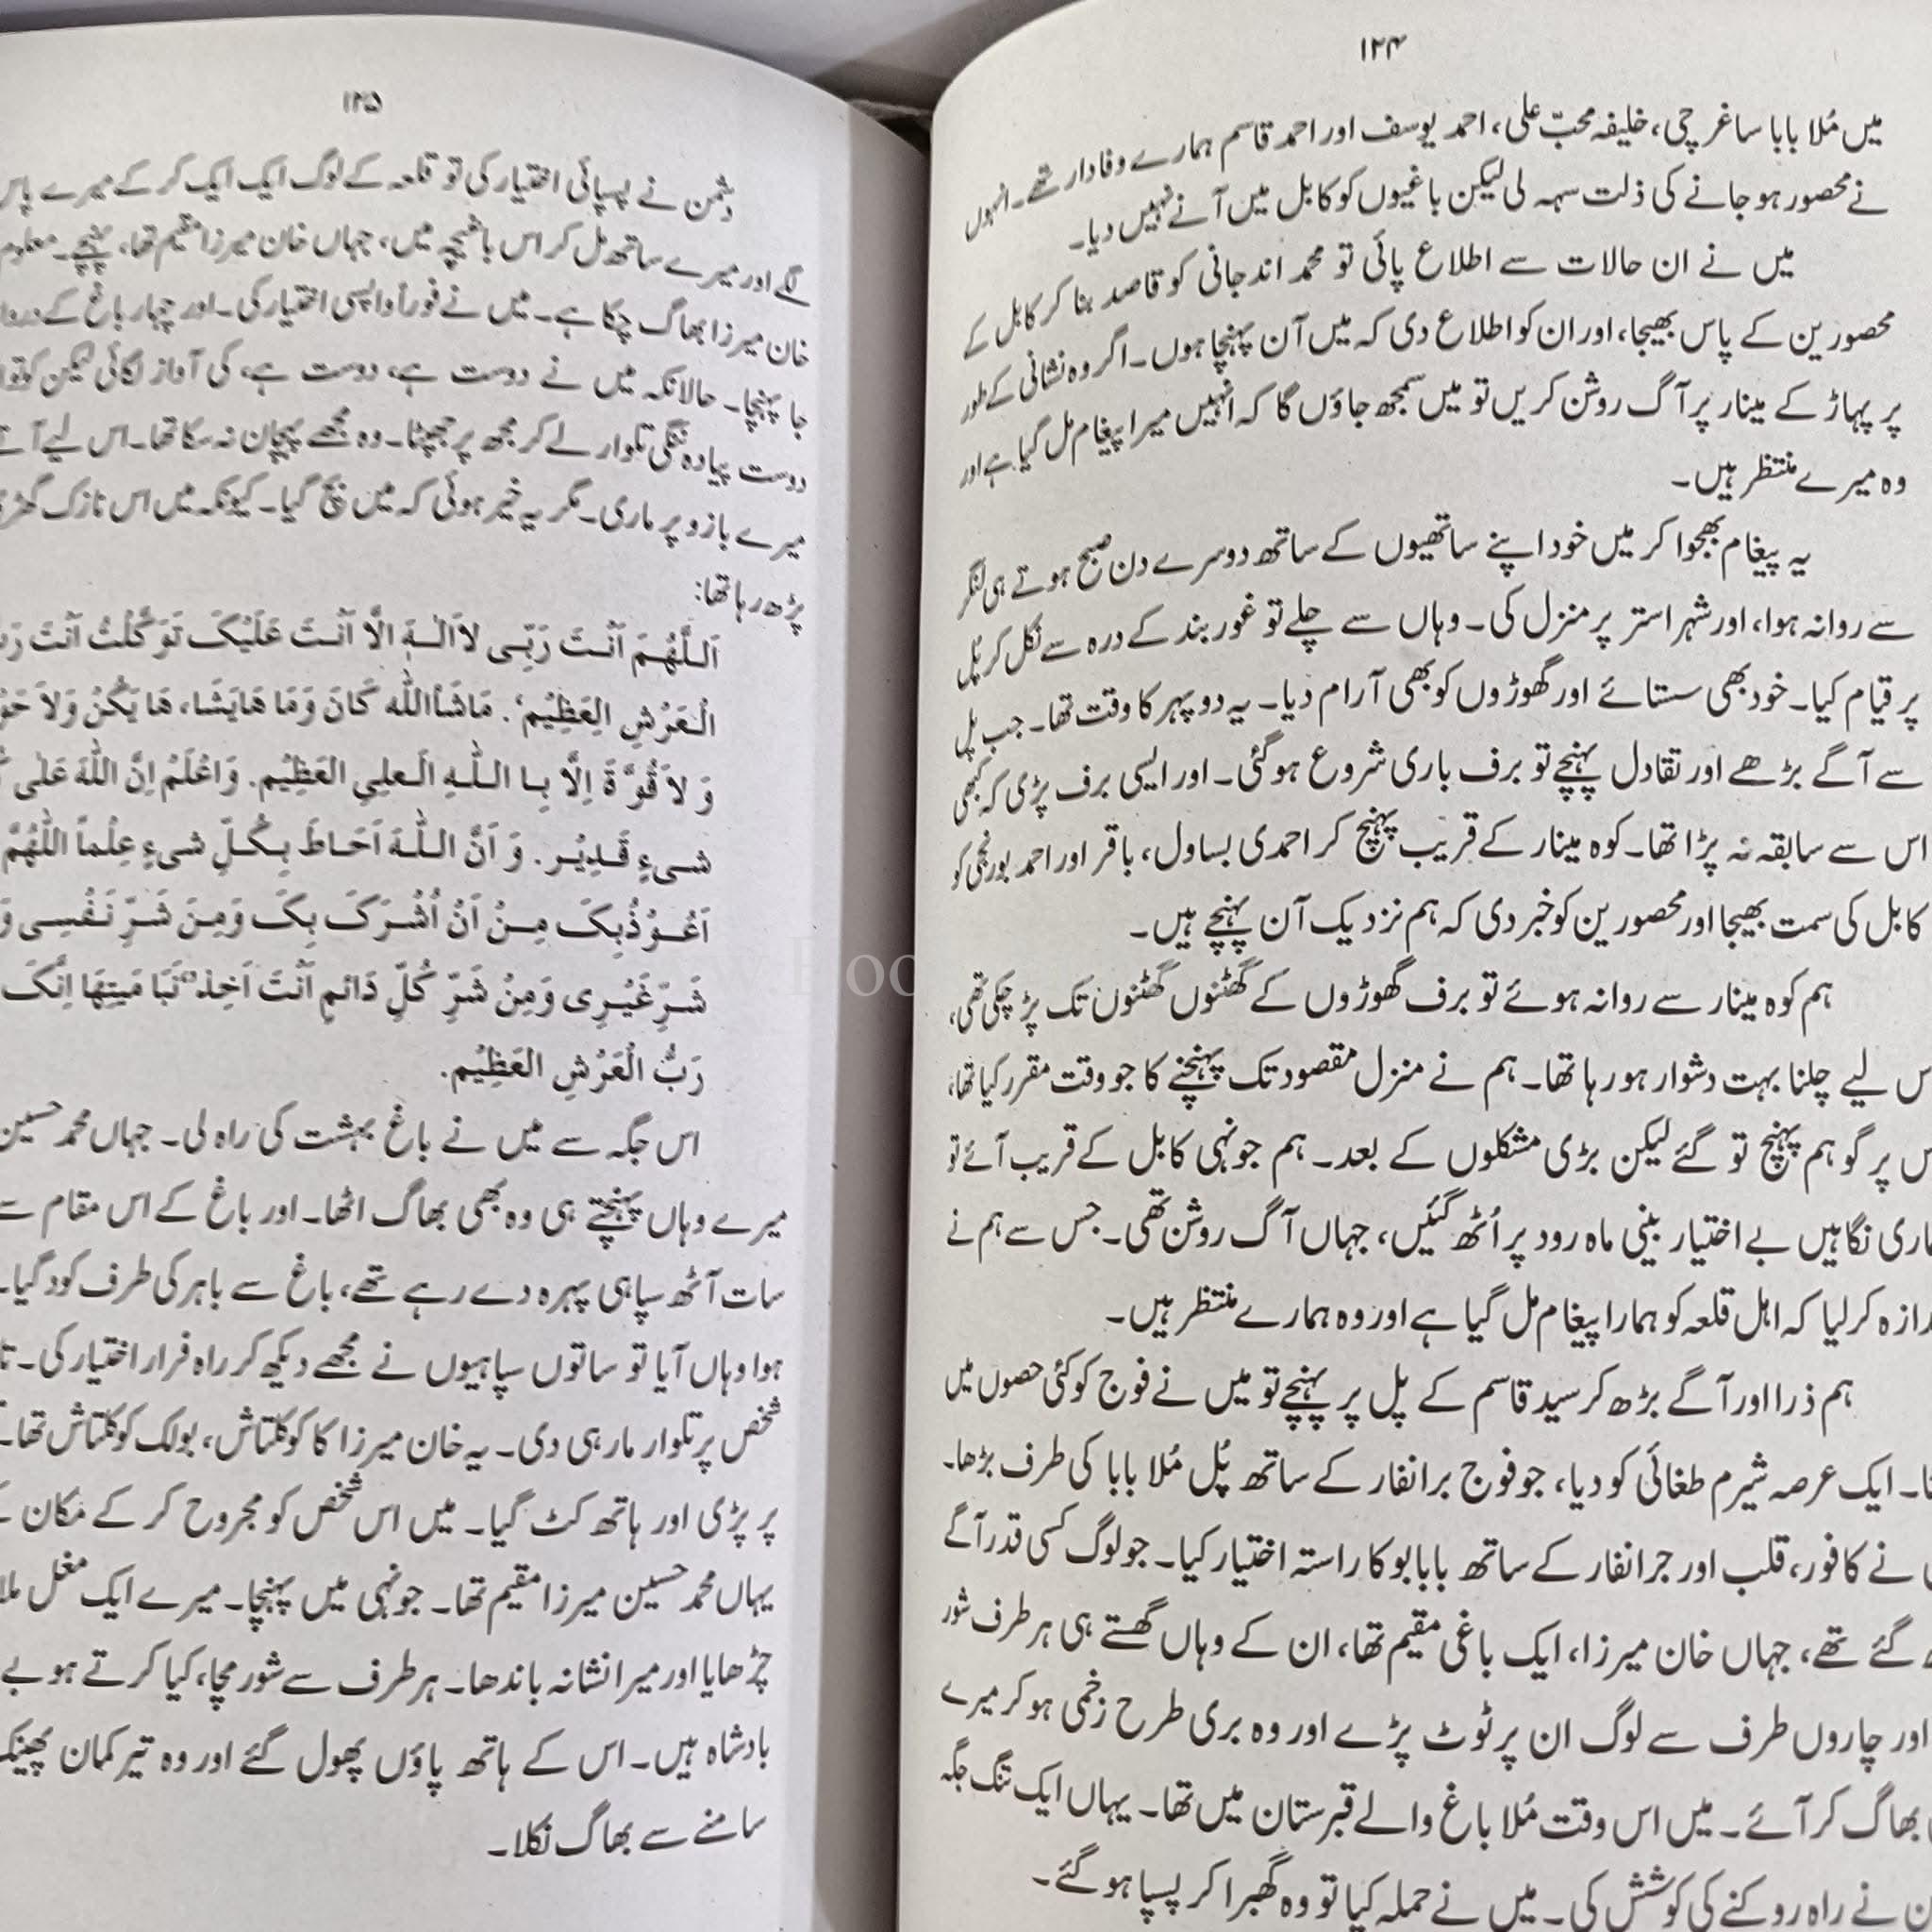 ۱۲۴
میں مُلا بابا ساغرچی، خلیفہ محبّ علی، احمد یوسف اور احمد قاسم ہمارے وفادار تھے۔ انہوں
نے محصور ہو جانے کی ذلت سہہ لی لیکن باغیوں کو کابل میں آنے نہیں دیا۔
میں نے ان حالات سے اطلاع پائی تو محمد اندجانی کو قاصد بنا کر کابل کے
محصورین کے پاس بھیجا، اور ان کو اطلاع دی کہ میں آن پہنچا ہوں۔ اگر وہ نشانی کے طور
پر پہاڑ کے مینار پر آگ روشن کریں تو میں سمجھ جاؤں گا کہ انہیں میرا پیغام مل گیا ہے اور
وہ میرے منتظر ہیں۔
یہ پیغام بھجوا کر میں خود اپنے ساتھیوں کے ساتھ دوسرے دن صبح ہوتے ہی لنگر
سے روانہ ہوا، اور شہر استر پر منزل کی۔ وہاں سے چلے تو غور بند کے درہ سے نکل کر پُل
پر قیام کیا۔ خود بھی سستائے اور گھوڑوں کو بھی آرام دیا۔ یہ دوپہر کا وقت تھا۔ جب پل
سے آگے بڑھے اور نقادل پہنچے تو برف باری شروع ہو گئی۔ اور ایسی برف پڑی کہ کبھی
اس سے سابقہ نہ پڑا تھا۔ کوہ مینار کے قریب پہنچ کر احمدی بساول، باقر اور احمد بورنجی کو
کابل کی سمت بھیجا اور محصورین کو خبر دی کہ ہم نزدیک آن پہنچے ہیں۔
ہم کوہ مینار سے روانہ ہوئے تو برف گھوڑوں کے گھٹنوں گھٹنوں تک پڑ چکی تھی،
س لیے چلنا بہت دشوار ہو رہا تھا۔ ہم نے منزل مقصود تک پہنچنے کا جو وقت مقرر کیا تھا،
س پر گو ہم پہنچ تو گئے لیکن بڑی مشکلوں کے بعد۔ ہم جونہی کابل کے قریب آئے تو
اری نگاہیں بے اختیار بینی ماہ رود پر اُٹھ گئیں، جہاں آگ روشن تھی۔ جس سے ہم نے
دازہ کر لیا کہ اہل قلعہ کو ہمارا پیغام مل گیا ہے اور وہ ہمارے منتظر ہیں۔
ہم ذرا اور آگے بڑھ کر سید قاسم کے پل پر پہنچے تو میں نے فوج کو کئی حصوں میں
ا۔ ایک عرصہ شیرم طغائی کو دیا، جو فوج برانفار کے ساتھ پُل مُلا بابا کی طرف بڑھا۔
نے کافور، قلب اور جرانفار کے ساتھ بابا بو کا راستہ اختیار کیا۔ جو لوگ کسی قدر آگے
گئے تھے، جہاں خان میرزا، ایک باغی مقیم تھا، ان کے وہاں گھستے ہی ہر طرف شور
اور چاروں طرف سے لوگ ان پر ٹوٹ پڑے اور وہ بری طرح زخمی ہو کر میرے
بھاگ کر آئے۔ میں اس وقت مُلا باغ والے قبرستان میں تھا۔ یہاں ایک تنگ جگہ
ن نے راہ روکنے کی کوشش کی۔ میں نے حملہ کیا تو وہ گھبرا کر پسپا ہو گئے۔
۱۲۵
دشمن نے پسپائی اختیار کی تو قلعہ کے لوگ ایک ایک کر کے میرے پاس
لگے اور میرے ساتھ مل کر اس باغیچہ میں، جہاں خان میرزا مقیم تھا، پہنچے۔ معلوم
خان میرزا بھاگ چکا ہے۔ میں نے فوراً واپسی اختیار کی۔ اور چہار باغ کے
جا پہنچا۔ حالانکہ میں نے دوست ہے، دوست ہے، کی آواز لگائی لیکن
دوست پیادہ ننگی تلوار لے کر مجھ پر جھپٹا۔ وہ مجھے پہچان نہ سکا تھا۔ اس لیے آتے
میرے بازو پر ماری۔ مگر یہ خیر ہوئی کہ میں بچ گیا۔ کیونکہ میں اس نازک گھڑی
پڑھ رہا تھا:
اَللّٰهُمَ اَنْتَ رَبِّی لاَاِلٰهَ الَّا اَنْتَ عَلَیْکَ تَوَکَّلْتُ اَنْتَ
الْعَرْشِ الِعَظِیْم. مَاشَاْاللّٰه کَانَ وَمَا هَایَشَا، هَا یَکُنْ وَلاَ
وَ لاَ قُوَّةَ اِلَّا بِا اللّٰهِ الَعلِی العَظِیْم. وَاعْلَمْ اِنَّ اللّٰهَ عَلٰی
شیءٍ قَدِیْر. وَ اَنَّ اللّٰهَ اَحَاطَ بِکُلِّ شیءٍ عِلْماً اللّٰهُمَّ
اَعُوْذُبِکَ مِنْ اَنْ اُشْرَکَ بِکَ وَمِنَ شَرِّ نَفْسِی وَ
شَرِّ غَیْرِی وَمِنْ شَرِّ کُلِّ دَائمٍ اَنْتَ اَخِذ نَبَا مَیتِهَا اِنَّکَ
رَبُّ الْعَرْشِ العَظِیْم.
اس جگہ سے میں نے باغ بہشت کی راہ لی۔ جہاں محمد حسین
میرے وہاں پہنچتے ہی وہ بھی بھاگ اٹھا۔ اور باغ کے اس مقام سے
سات آٹھ سپاہی پہرہ دے رہے تھے، باغ سے باہر کی طرف کود گیا۔
ہوا وہاں آیا تو ساتوں سپاہیوں نے مجھے دیکھ کر راہ فرار اختیار کی۔
شخص پر تلوار مار ہی دی۔ یہ خان میرزا کا کوکلتاش، بولک کوکلتاش تھا۔
پر پڑی اور ہاتھ کٹ گیا۔ میں اس شخص کو مجروح کر کے مکان
یہاں محمد حسین میرزا مقیم تھا۔ جونہی میں پہنچا۔ میرے ایک مغل
چڑھایا اور میرا نشانہ باندھا۔ ہر طرف سے شور مچا، کیا کرتے ہو
بادشاہ ہیں۔ اس کے ہاتھ پاؤں پھول گئے اور وہ تیر کمان پھینک
سامنے سے بھاگ نکلا۔